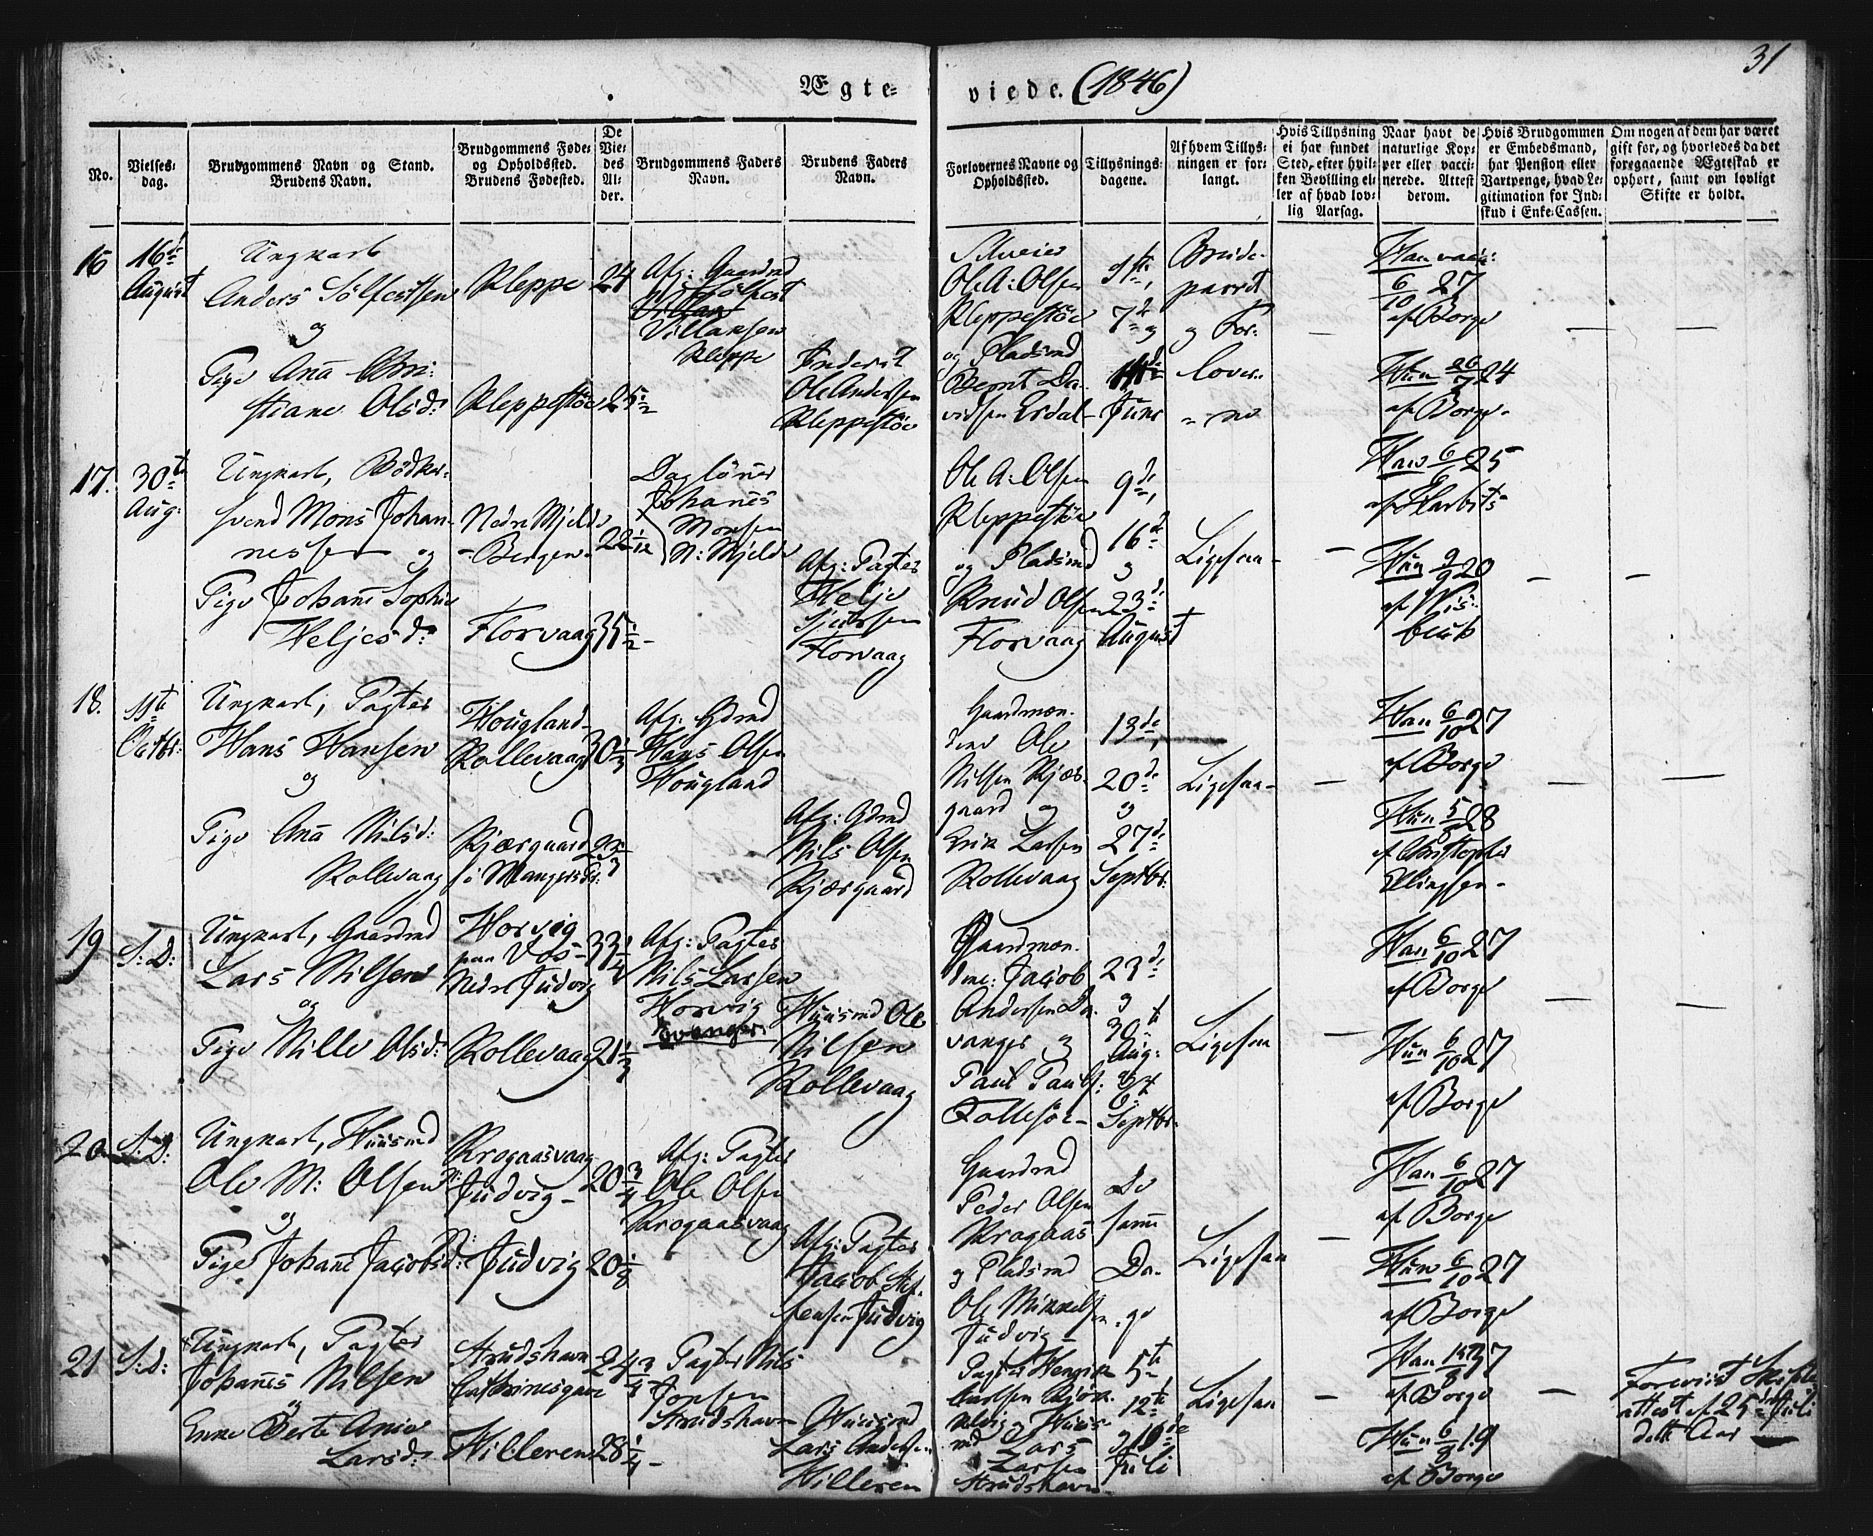 31
Ægte-
viede. (1846)
No.
Vielses-
dag.
Brudgommens Navn og Stand.
Brudens Navn.
Brudgommens Føde-
og Opholdssted.
Brudens Fødested.
De
Vie-
des
Al-
der.
Brudgommens Faders
Navn.
Brudens Faders
Navn.
Forlovernes Navne og
Opholdssted.
Tillysnings-
dagene.
Af hvem Tillys-
ningen er for-
langt.
Hvis Tillysning
ei har fundet
Sted, efter hvil-
ken Bevilling el-
ler af hvad lov-
lig Aarsag.
Naar havt de
naturlige Kop-
per eller vacci-
nerede. Attest
derom.
Hvis Brudgommen
er Embedsmand,
har Pension eller
Vartpenge, hvad Le-
gitimation for Ind-
skud i Enke-Cassen.
Om nogen af dem har været
gift før, og hvorledes da det
foregaaende Ægteskab er
ophørt, samt om lovligt
Skifte er holdt.
16
16de
August
Ungkarl
Anders Sølfestsen
og
Pige Ana Chri-
stiane Olsd:
Kleppe
Kleppestöe
24
25 1/2
Afg: Gaardmd
Sølfest
Villumsen
Kleppe
Ole Andersen
Kleppestöe
Ole A: Olsen
Kleppestöe
og Pladsmd
Bernt Da-
vidsen Erdal
7de og
Juni
Brude-
parret
og For-
lover-
ne
Han vacc:
6/10 27
af Borge
Hun 26/7 24
af Borge
17.
30te
Aug:
Ungkarl, Bödker-
svend Mons Johan-
nessen og
Pige Johane Sophie
Heljesd:
Nedre Mjelde
Bergen
Florvaag
22 1/12
35 1/2
Daglöner
Johanes
Monsen
N: Mjelde
Afg: Pagter
Helje
Sjursen
Florvaag
Ole A: Olsen
Kleppestöe
og Pladsmd
Knud Olsen
Florvaag
9de,
16de
og
23de
August
Ligesaa
Han 6/6 25
Hun 9/9 20
af Nis-
18.
11te
Octbr:
Ungkarl, Pagter
Hans Hansen
og
Pige Ana Nilsd:
Rollevaag
Hougland
Rollevaag
Kjærgaard
i Mangersd:
30 1/3
Afg: Gdmd
Hans Olsen
Hougland
Afg: Gdmd
Nils Olsen
Kjærgaard
Gaardmæn-
dene Ole
Nilsen Kjær-
gaard og
Erik Larsen
Rollevaag
13de,
20de
og
27de
Septbr:
Ligesaa
Han 6/10 27
af Borge
Hun 5/8 28
af Christopher
Ellingsen
19
S: D:
Ungkarl, Gaardmd
Lars Nilsen
og
Pige Nille Olsd:
Horvig
paa Vos
Nedre Judvig
Rollevaag
33 1/4
21 1/3
Afg: Pagter
Nils Larsen
Horvig
Evanger.
Huusmd Ole
Nilsen
Rollevaag
Gaardmæn-
dene: Jacob
Andersen Da-
vanger og
Paul Pauls:
23de
og
30te
Aug:
og
6te
Septbr:
Ligesaa
Han 6/10 27
af Borge
Hun 6/10 27
af Borge
20
S: D:
Ungkarl, Huusmd
Ole M: Olsen
og
Pige Johane Jacobsd:
Krogaasvaag
Judvig
Judvig
20 3/4
20 1/8
Afg: Pagter
Ole Olsen
Krogaasvaag
Afg: Pagter
Jacob Stef-
fensen Judvig
Gaardmd
Peder Olsen
Krogaas
og Pladsmd
Ole Mikkelsen
Judvig
De
samme
Da-
ge
Ligesaa
Han 6/10 27
af Borge
Hun 6/10 27
af Borge
21
S: D:
Ungkarl, Pagter
Johanes Nilsen
og
Enke Berte Anne
Larsd:
Strudshavn
Hilleren
24 3/4
28 1/4
Pagter Nils
Jonsen
Strudshavn
Huusmd
Lars Andersen
Hilleren
Pagter Henrik
Carlsen
og Huus-
md Lars
Larsen
Strudshavn
5te
12te
og 19de
Juli
Ligesaa
af Borge
Hun 6/8 19
af Borge
Foreviist Skifte-
attest af 25de Juli
dette Aar